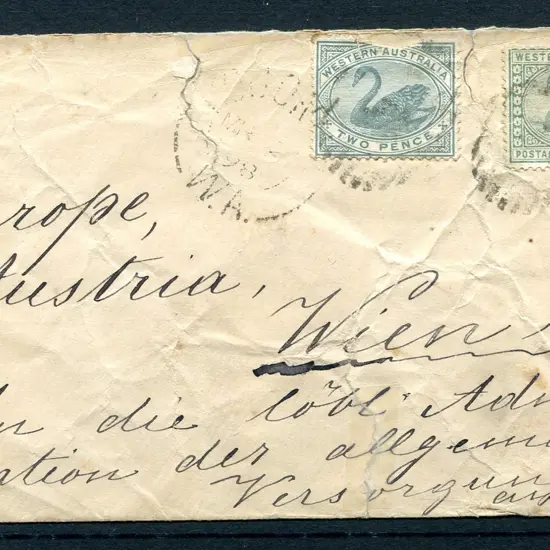 WESTERN AUSTRALIA
TWO PENCE
WESTE
POSTA
W.A.
rope,
ustria,
Wien
n die löbl Adm
ation der allgeme
Versorgun